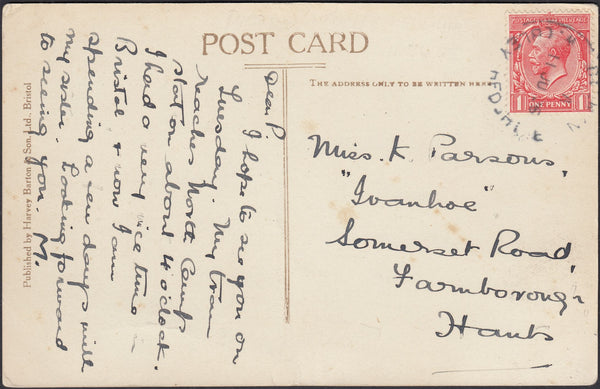 POST CARD
THE ADDRESS ONLY TO BE WRITTEN HERE
Dear P.
I hope to see you on
Tuesday. My train
reaches North Camp
station about 4 o'clock.
I had a very nice time in
Bristol & now I am
spending a few days with
my sister. Looking forward
to seeing you M.
Published by Harvey Barton & Son, Ltd., Bristol
POSTAGE REVENUE
1 1
ONE PENNY
REDSHILL
Miss. K. Parsons,
"Ivanhoe"
Somerset Road,
Farnborough
Hants